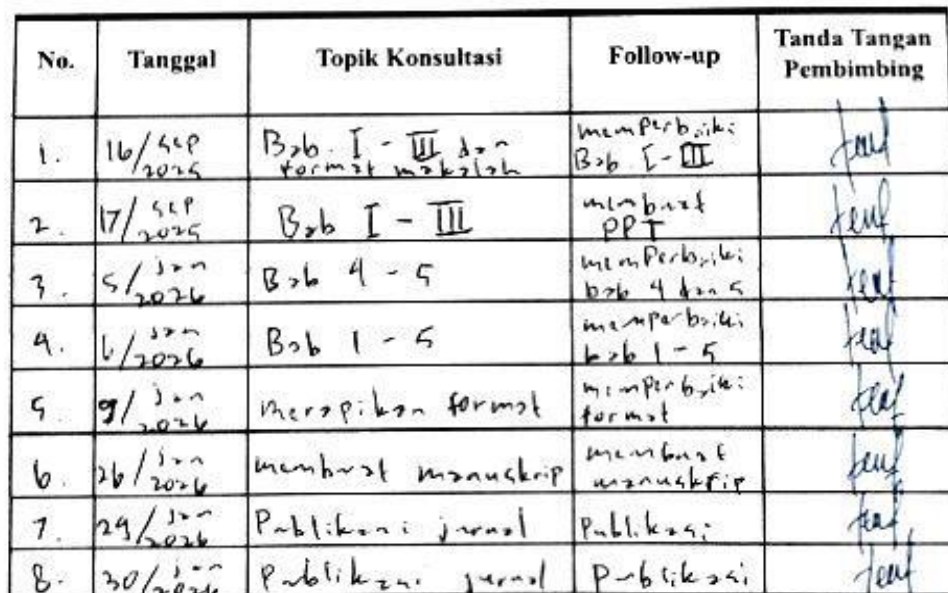 No. Tanggal Topik Konsultasi Follow-up Tanda Tangan Pembimbing
1. 16/sep 2025 Bab. I - III dan format makalah memperbaiki Bab. I - III
2. 17/sep 2025 Bab I - III membuat PPT
3. 5/jan 2026 Bab 4 - 5 memperbaiki bab 4 dan 5
4. 6/jan 2026 Bab 1 - 5 memperbaiki bab 1 - 5
5. 9/jan 2026 merapikan format memperbaiki format
6. 26/jan 2026 membuat manuskrip membuat manuskrip
7. 29/jan 2026 Publikasi jurnal Publikasi
8. 30/jan 2026 Publikasi jurnal Publikasi